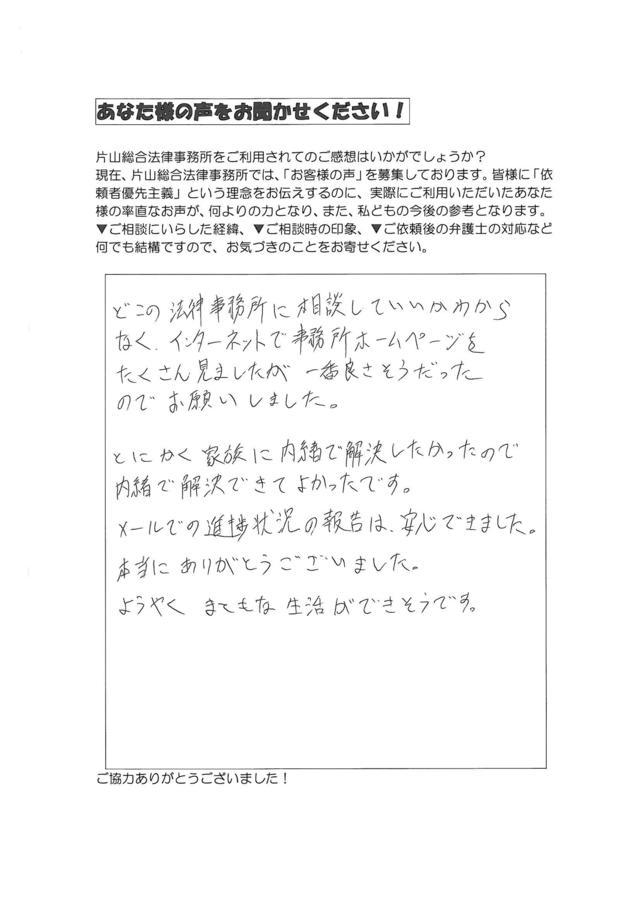 あなた様の声をお聞かせください！
片山総合法律事務所をご利用されてのご感想はいかがでしょうか？
現在、片山総合法律事務所では、「お客様の声」を募集しております。皆様に「依
頼者優先主義」という理念をお伝えするのに、実際にご利用いただいたあなた
様の率直なお声が、何よりの力となり、また、私どもの今後の参考となります。
▼ご相談にいらした経緯、▼ご相談時の印象、▼ご依頼後の弁護士の対応など
何でも結構ですので、お気づきのことをお寄せください。
どこの法律事務所に相談していいかわから
なく、インターネットで事務所ホームページを
たくさん見ましたが 一番良さそうだった
のでお願いしました。
とにかく家族に内緒で解決したかったので
内緒で解決できてよかったです。
メールでの進捗状況の報告は、安心できました。
本当にありがとうございました。
ようやく まともな生活ができそうです。
ご協力ありがとうございました！